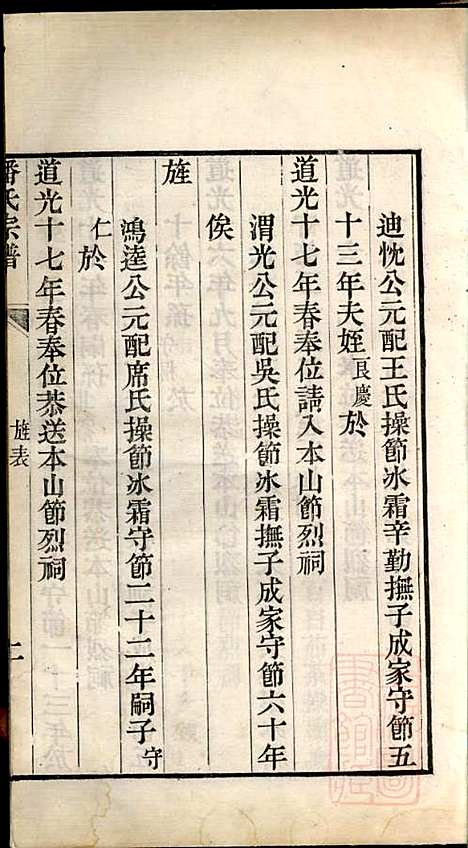 迪忱公元配王氏操節冰霜辛勤撫子成家守節五
十三年夫姪良慶於
道光十七年春奉位請入本山節烈祠
渭光公元配吳氏操節冰霜撫子成家守節六十年
俟
旌
鴻逵公元配席氏操節冰霜守節二十二年嗣子守
仁於
道光十七年春奉位恭送本山節烈祠
潘氏宗譜
旌表